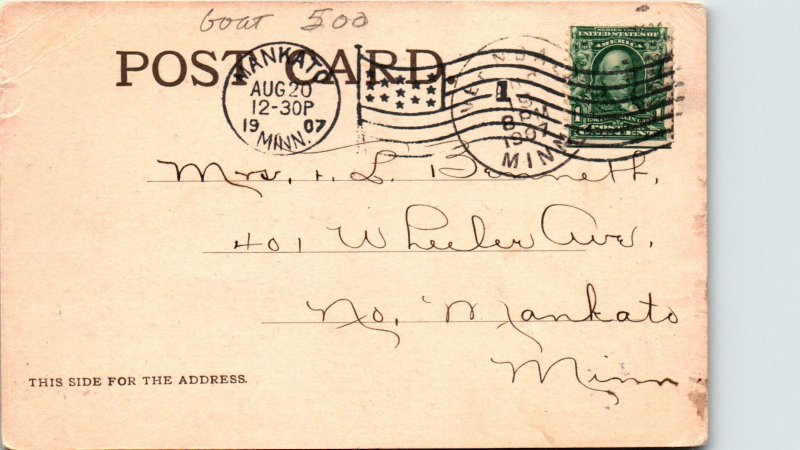 Goat 500
POST CARD.
MANKATO
AUG 20
12-30P
19 07
MINN.
1
8 PM
1907
MINN
SERIES 1902
UNITED STATES OF
AMERICA
POSTAGE
1 ONE CENT 1
Mrs. L. Bennett,
401 Wheeler Ave.
No. Mankato
Minn.
THIS SIDE FOR THE ADDRESS.